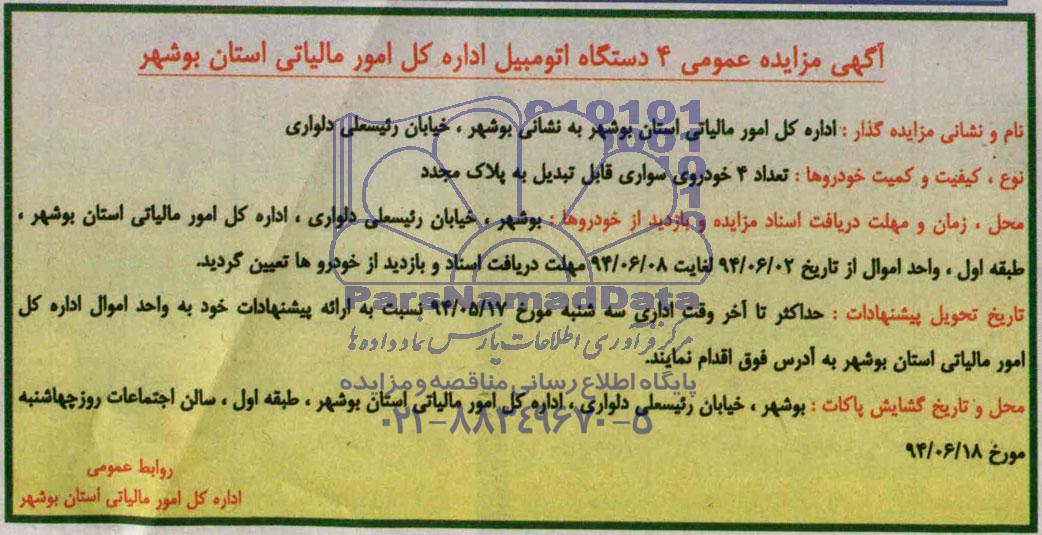 آگهی مزایده عمومی ۴ دستگاه اتومبیل اداره کل امور مالیاتی استان بوشهر
نام و نشانی مزایده گذار : اداره کل امور مالیاتی استان بوشهر به نشانی بوشهر ، خیابان رئیسعلی دلواری
نوع ، کیفیت و کمیت خودروها : تعداد ۴ خودروی سواری قابل تبدیل به پلاک مجدد
محل ، زمان و مهلت دریافت اسناد مزایده و بازدید از خودروها : بوشهر ، خیابان رئیسعلی دلواری ، اداره کل امور مالیاتی استان بوشهر ،
طبقه اول ، واحد اموال از تاریخ ۹۴/۰۶/۰۲ لغایت ۹۴/۰۶/۰۸ مهلت دریافت اسناد و بازدید از خودرو ها تعیین گردید.
ParsNamadData
تاریخ تحویل پیشنهادات : حداکثر تا آخر وقت اداری سه شنبه مورخ ۹۴/۰۵/۱۷ نسبت به ارائه پیشنهادات خود به واحد اموال اداره کل
مرکز فرآوری اطلاعات پارس نماد داده ها
امور مالیاتی استان بوشهر به آدرس فوق اقدام نمایند.
پایگاه اطلاع رسانی مناقصه و مزایده
محل و تاریخ گشایش پاکات : بوشهر ، خیابان رئیسعلی دلواری ، اداره کل امور مالیاتی استان بوشهر ، طبقه اول ، سالن اجتماعات روزچهاشنبه
۰۲۱-۸۸۳۴۹۶۷۰-۵
مورخ ۹۴/۰۶/۱۸
روابط عمومی
اداره کل امور مالیاتی استان بوشهر